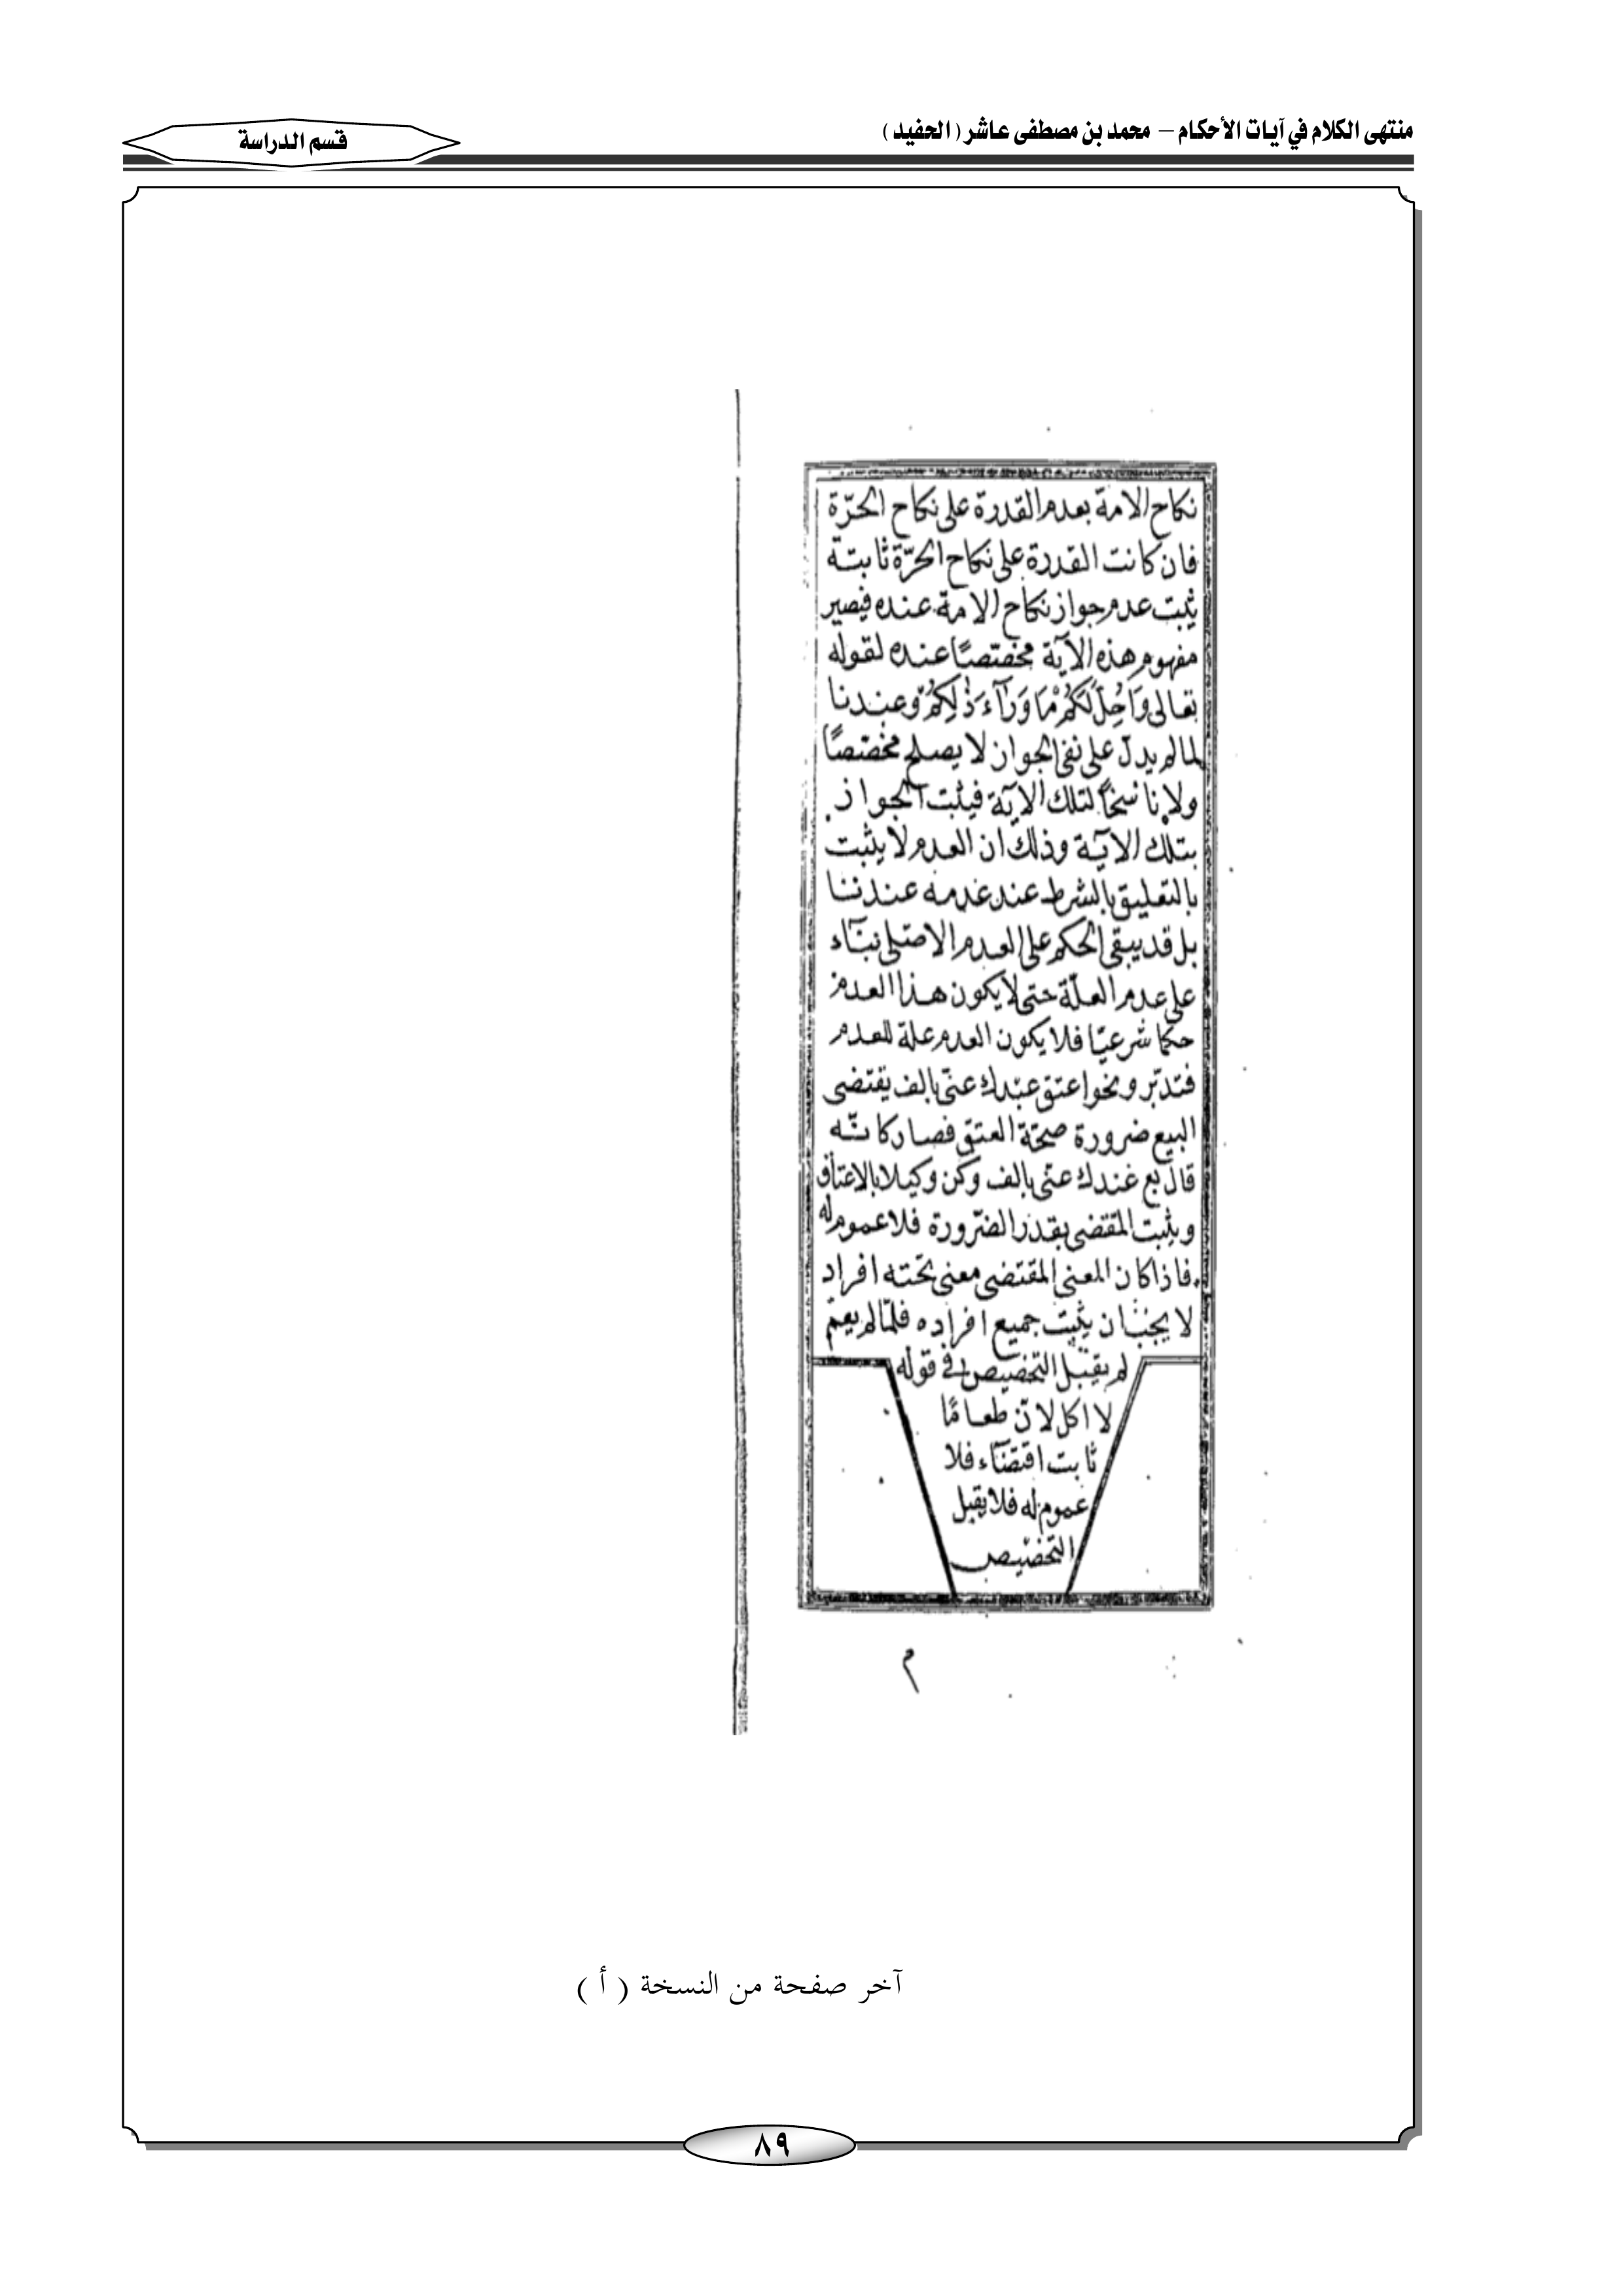 منتهى الكلام في آيات الأحكام – محمد بن مصطفى عاشر ( الحفيد )
قسم الدراسة
نكاح الامة بعدم القدرة على نكاح الحرّة
فان كانت القدرة على نكاح الحرّة ثابتة
يثبت عدم جواز نكاح الامة عنده فيصير
مفهوم هذه الآية مخصّصًا عنده لقوله
تعالى وَاُحِلَّ لَكُمْ مَا وَرَآءَ ذٰلِكُمْ وعندنا
لما لم يدلّ على نفى الجواز لا يصلح مخصّصًا
ولا ناسخًا لتلك الآية فيثبت الجواز
بتلك الآية وذلك ان العدم لا يثبت
بالتعليق بالشرط عند عدمه عندنا
بل قد يبقى الحكم على العدم الاصلى بنآء
على عدم العلّة حتى لا يكون هذا العدم
حكما شرعيّا فلا يكون العدم علة للعدم
فتدبّر ونحو اعتق عبدك عنّى بالف يقتضى
البيع ضرورة صحّة العتق فصار كانّه
قال بع عبدك عنّى بالف وكن وكيلا بالاعتاق
ويثبت المقتضى بقدر الضّرورة فلا عموم له
فاذا كان المعنى المقتضى معنى تحته افراد
لا يجب ان يثبت جميع افراده فلمّا لم يعمّ
لم يقبل التخصيص فى قوله
لا اكل لانّ طعامًا
ثابت اقتضآء فلا
عموم له فلا يقبل
التخصيص
م
آخر صفحة من النسخة ( أ )
٨٩